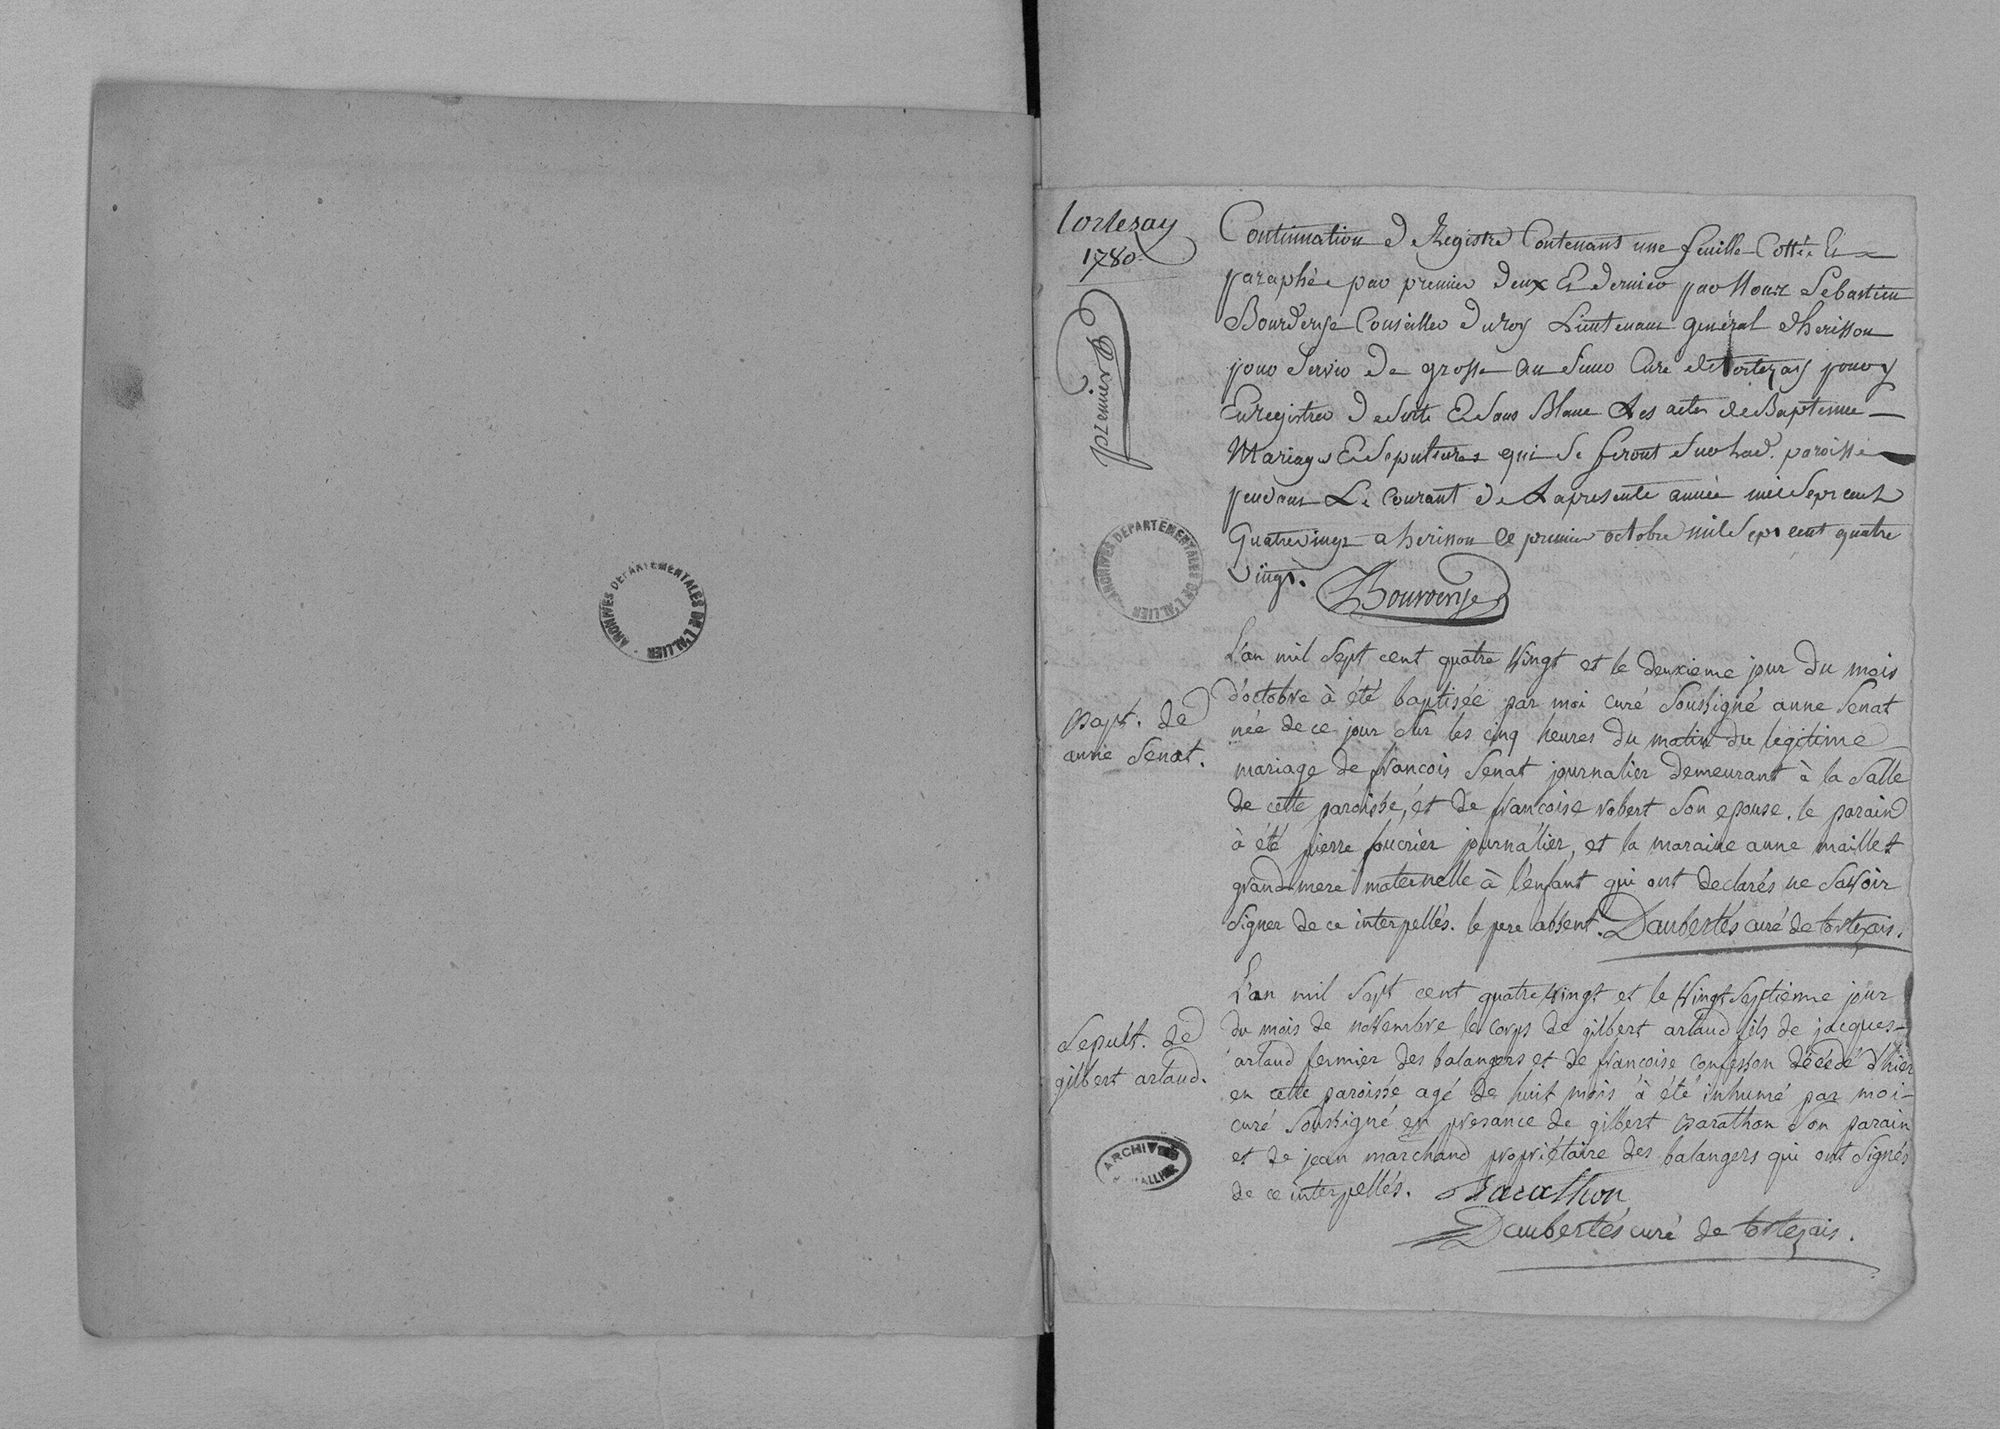 ARCHIVES DEPARTEMENTALES DE L'ALLIER
Tortezay
1780
premier
Continuation de Registre Contenant une feuille Cottée Et
paraphée par premier deux Et dernier par Nous Sebastien
Bourderye Conseiller du roy Lieutenant général d'herisson
pour servir de grosse au sieur Curé de tortezay pour y
Enregistrer de suite Et sans Blanc Les actes de Baptemes
Mariages Et sepultures qui se feront sur lad. paroisse
pendant Le courant de La presente année mil sept cent
Quatrevingt a herisson ce premier octobre mil sept cent quatre
vingt.
Bourderye
ARCHIVES DEPARTEMENTALES DE L'ALLIER
Bapt. de
anne Senat.
L'an mil sept cent quatre vingt et le deuxieme jour du mois
d'octobre à été baptisée par moi curé soussigné anne Senat
née de ce jour sur les cinq heures du matin du legitime
mariage de francois Senat journalier demeurant à la Salle
de cette paroisse, et de francoise robert son epouse. le parain
à été pierre foucrier journalier, et la maraine anne maillet
grand-mere maternelle à l'enfant qui ont declarés ne savoir
signer de ce interpellés. le pere absent. Daubertés curé de tortezais.
Sepult. de
gilbert artaud.
L'an mil sept cent quatre vingt et le vingt septième jour
du mois de novembre le corps de gilbert artaud fils de jacques
artaud fermier des balangers et de francoise confesson décédé d'hier
en cette paroisse agé de huit mois à été inhumé par moi
curé soussigné en presance de gilbert Barathon son parain
et de jean marchand propriétaire des balangers qui ont signés
de ce interpellés. Barathon
Daubertés curé de tortezais.
ARCHIVES
ALLIER